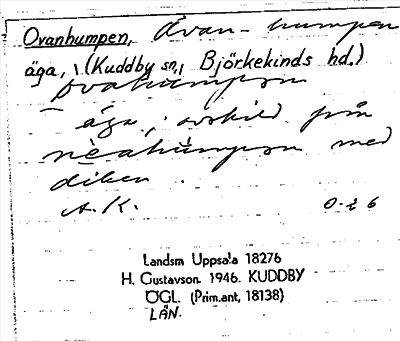 Ovanhumpen, Ovan-humpen
äga, (Kuddby sn, Björkekinds hd.)
ovahumpen
äga, avskild från
med
diken.
A. K. 0-26
Landsm Uppsala 18276
H. Gustavson. 1946. KUDDBY
ÖGL. (Prim.ant, 18138)
LÄN.